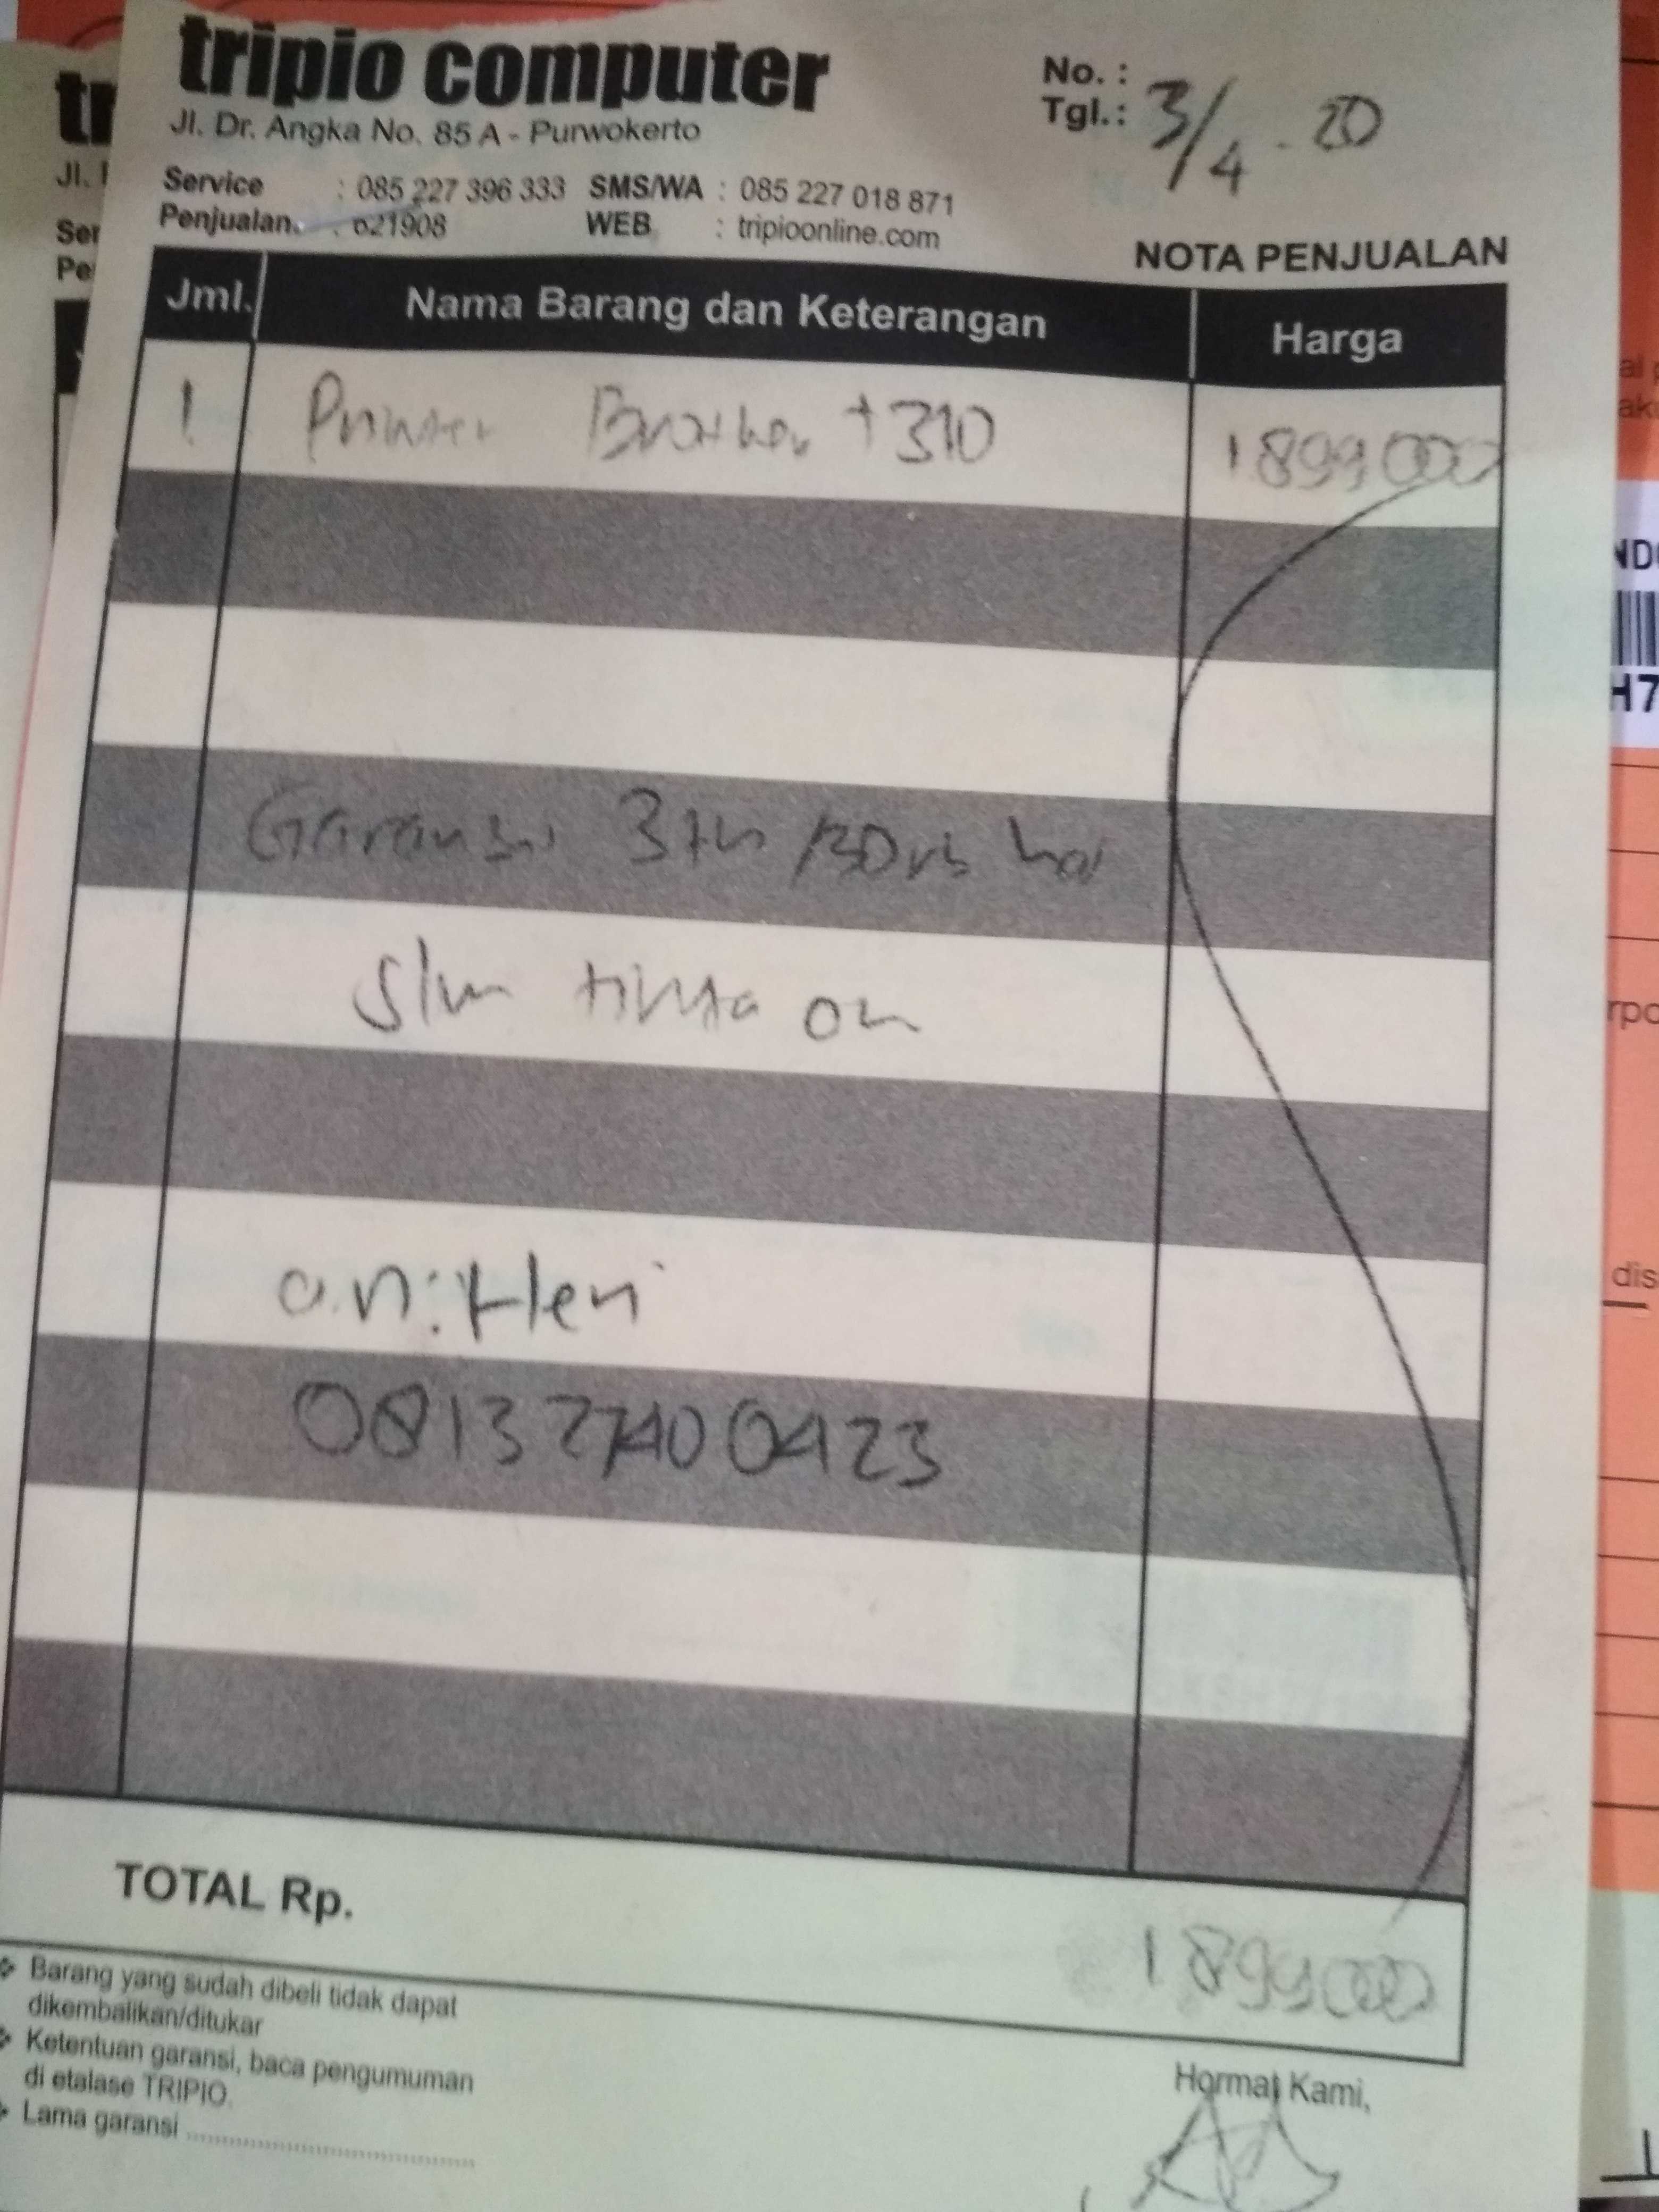 tripio computer
Jl. Dr. Angka No. 85 A - Purwokerto
Service : 085 227 396 333 SMS/WA : 085 227 018 871
Penjualan : 621908 WEB : tripioonline.com
No. :
Tgl.: 3/4 - 20
NOTA PENJUALAN
Jml. Nama Barang dan Keterangan Harga
1 Printer Brother t310 1899000
Garansi 3th /30rb hal
tinta on
a.n: Heri
081327400423
TOTAL Rp. 1899000
Barang yang sudah dibeli tidak dapat
dikembalikan/ditukar
Ketentuan garansi, baca pengumuman
di etalase TRIPIO.
Lama garansi ........................................
Hormat Kami,
tr
Jl.
Ser
Pe
H7
rpo
dis